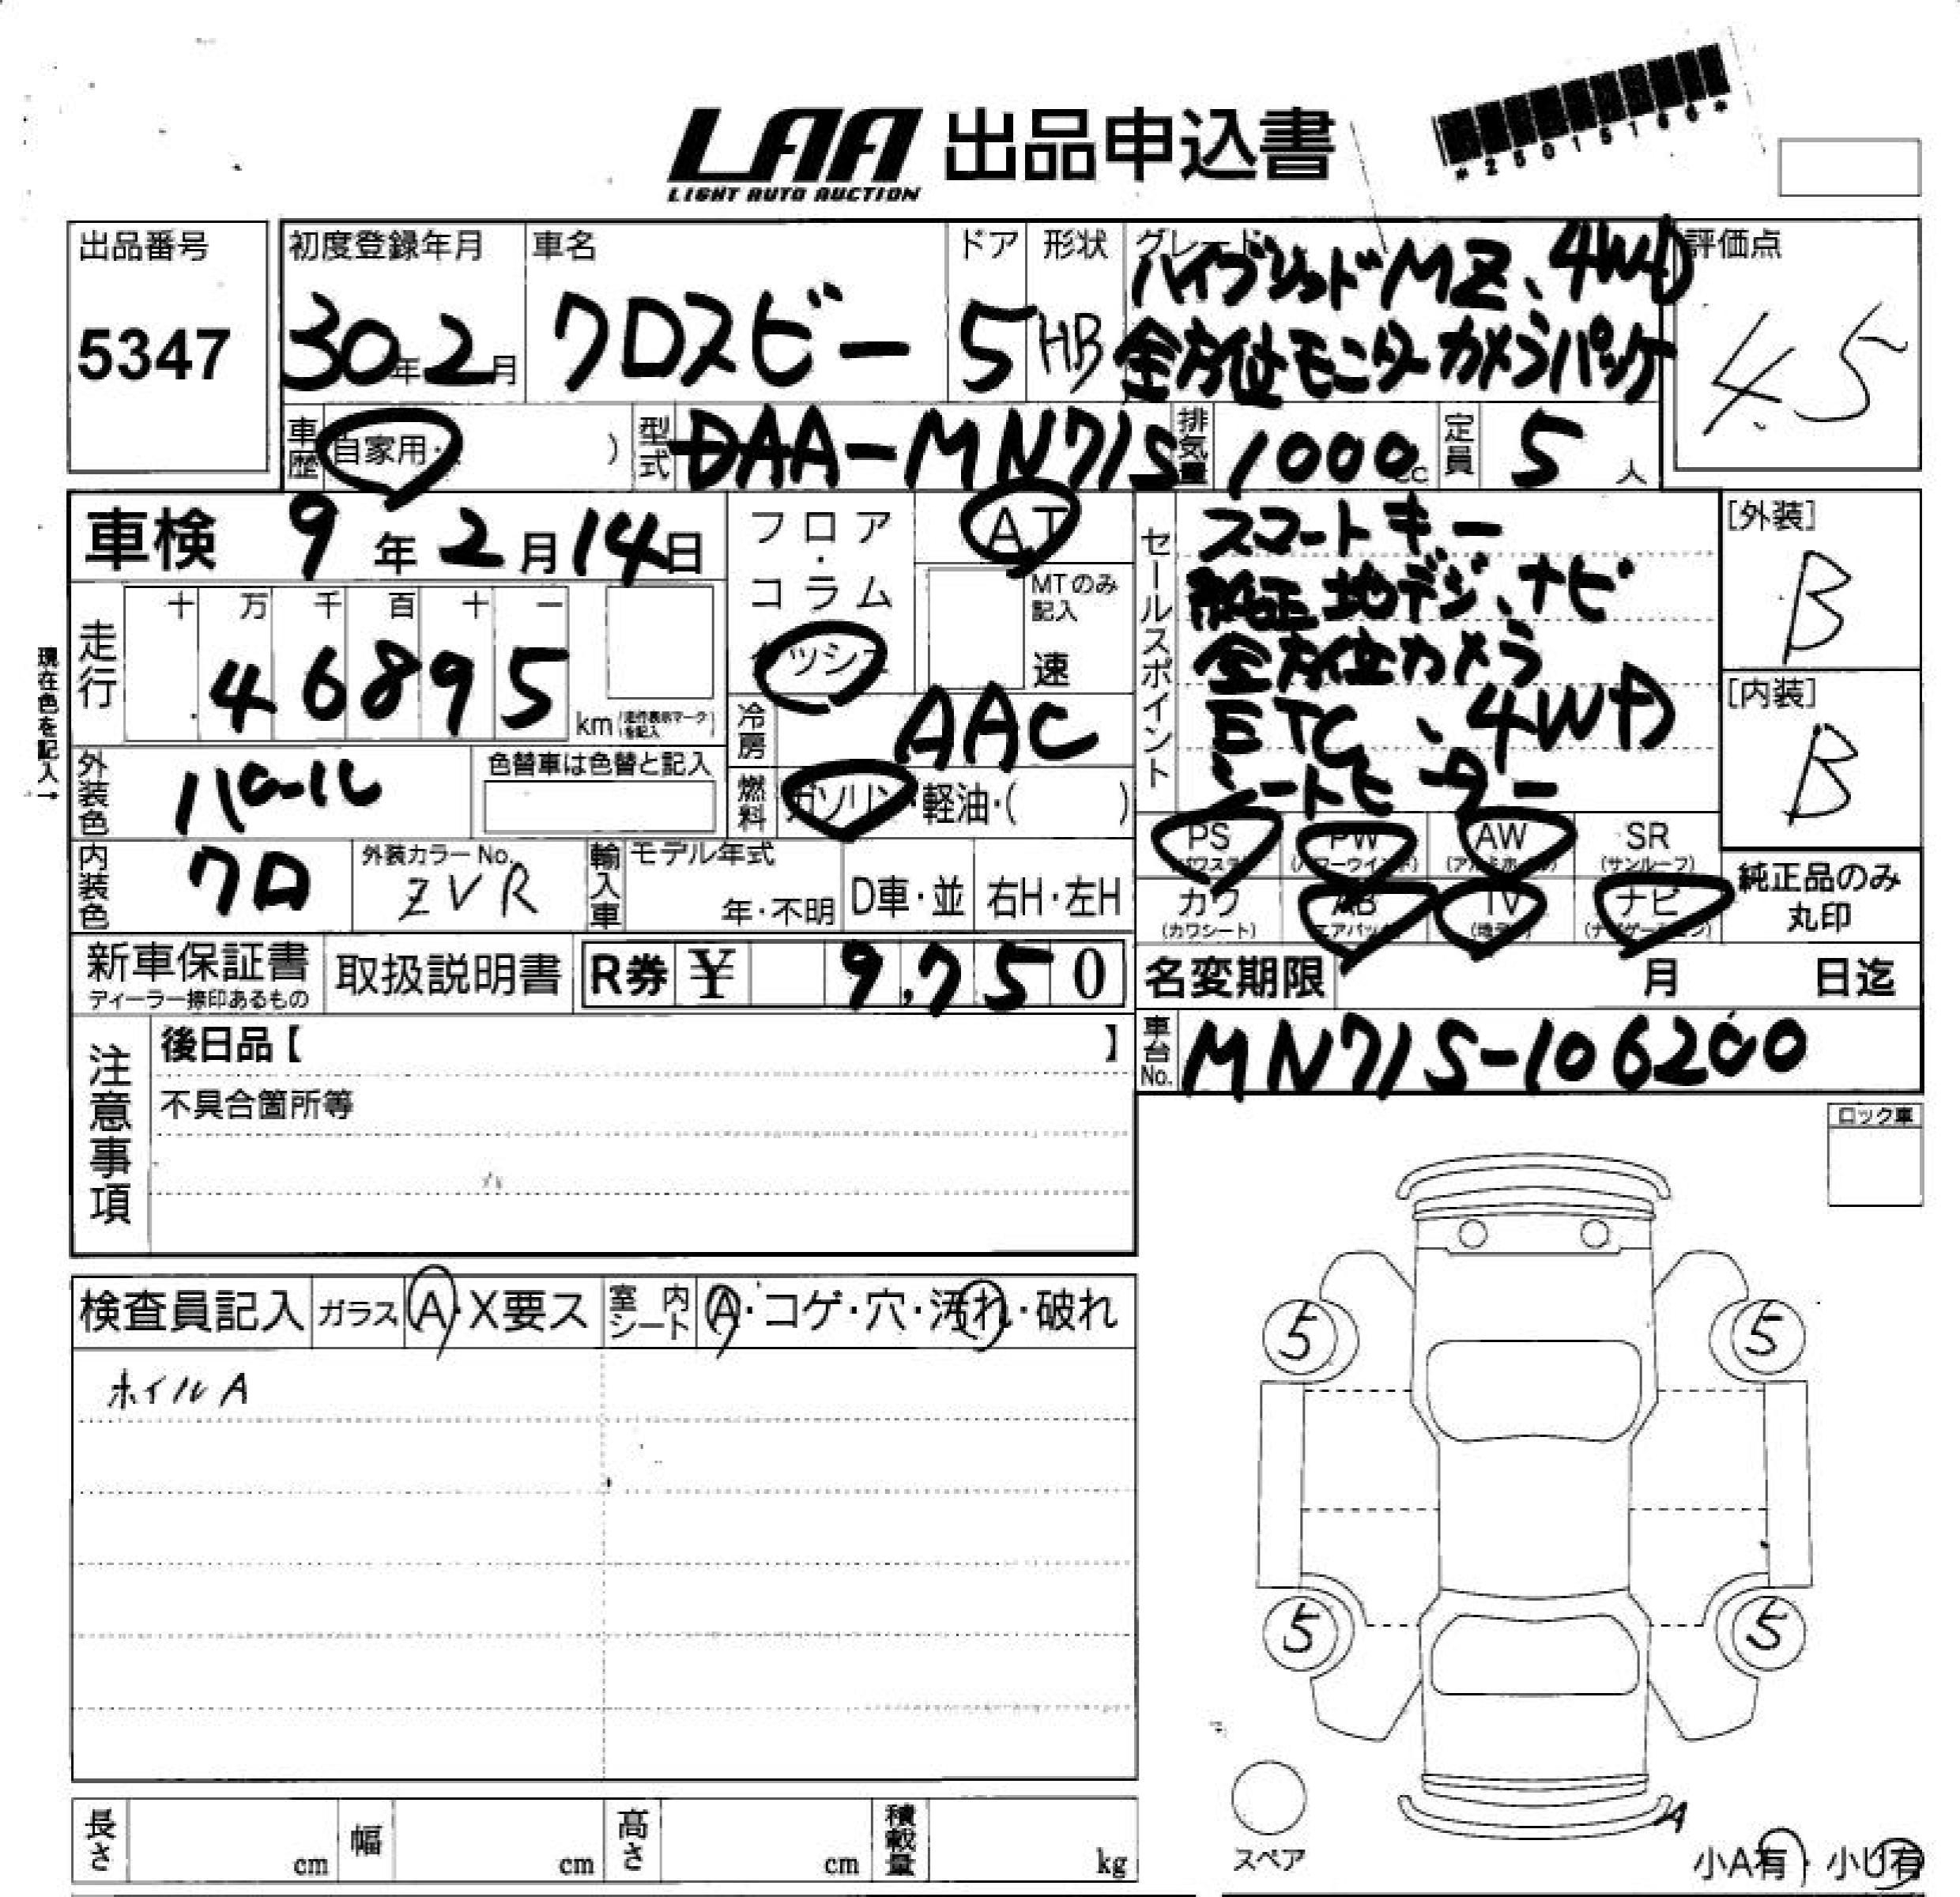 LAA 出品申込書
LIGHT AUTO AUCTION
*25015166*
出品番号
5347
初度登録年月
30年2月
車名
クロスビー
ドア
5
形状
HB
グレード
ハイブリッドMZ、4WD
全方位モニターカメラパック
評価点
4.5
車歴
自家用・ )
型式
DAA-MN71S
排気量
1000cc
定員
5人
車検 9年2月14日
フロア・コラム
ッシュ
AT
MTのみ記入
速
走行
十 万 千 百 十 一
46895
km
現在色を記入→
冷房
AAC
外装色
パール
色替車は色替と記入
燃料
ガソリン・軽油・( )
内装色
クロ
外装カラーNo.
ZVR
輸入車
モデル年式
年・不明
D車・並
右H・左H
セールスポイント
スマートキー
純正地デジ、ナビ
全方位カメラ
ETC、4WD
シートヒーター
[外装]
B
[内装]
B
PS PW AW SR
(パワステ) (パワーウインド) (アルミホイル) (サンルーフ)
カワ AB TV ナビ
(カワシート) (エアバック) (地デジ) (ナビゲーション)
純正品のみ
丸印
新車保証書
ディーラー捺印あるもの
取扱説明書
R券 ¥ 9,750
名変期限 月 日迄
注意事項
後日品【 】
不具合箇所等
車台No.
MN71S-106200
ロック車
検査員記入 ガラス A・X要ス 室内シート A・コゲ・穴・汚れ・破れ
ホイルA
5 5
5 5
スペア
A
小A有・小U有
長さ cm 幅 cm 高さ cm 積載量 kg